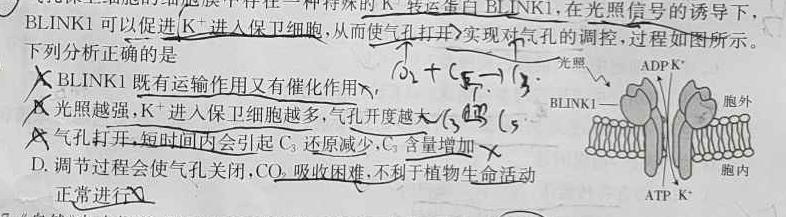 气孔保卫细胞的细胞膜中存在一种特殊的K⁺转运蛋白BLINK1,在光照信号的诱导下,
BLINK1可以促进K⁺进入保卫细胞,从而使气孔打开,实现对气孔的调控,过程如图所示。
下列分析正确的是
BLINK1既有运输作用又有催化作用
光照越强,K⁺进入保卫细胞越多,气孔开度越大
气孔打开,短时间内会引起C₃还原减少,C₃含量增加
D. 调节过程会使气孔关闭,CO₂吸收困难,不利于植物生命活动
正常进行
光照
ADP K⁺
BLINK1
胞外
胞内
ATP K⁺